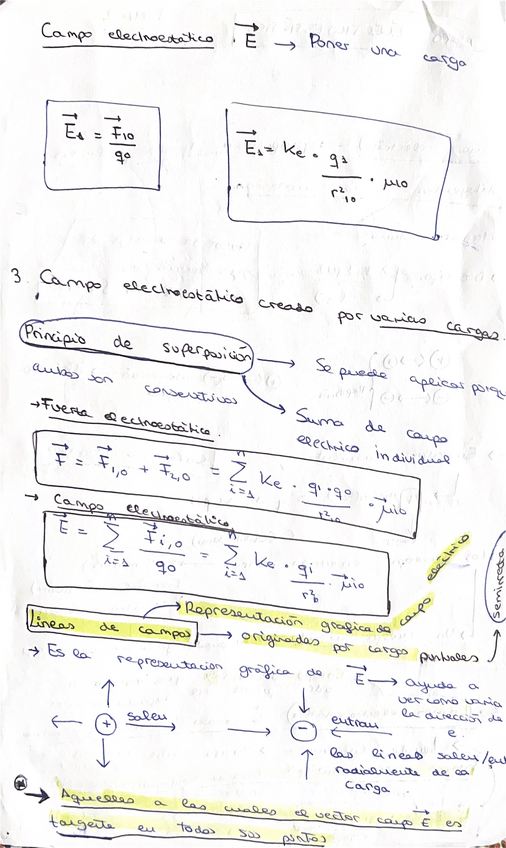 Campo electroestático. E → Poner una carga
E₁ = F₁₀ / q₀
E₁ = Ke · q₁ / r²₁₀ · μ₁₀
3. Campo electroestático creado por varias cargas.
Principio de superposición → Se puede aplicar porque
ambos son conservativos
Suma de campo
electrico individual
→ Fuerza electroestática.
F = F₁,₀ + F₂,₀ = Σ n i=1 Ke · q₁·q₀ / r²₁₀ · μio
→ Campo electroestático.
E = Σ n i=1 Fi,₀ / q₀ = Σ n i=1 Ke · qi / r² · μio
Representación gráfica de campo eléctrico
Líneas de campos → originadas por cargas puntuales
semirrecta
→ Es la representación gráfica de E → ayuda a
ver como varia
la dirección de
e
+ salen
- entran
las lineas salen/ent
radialmente de la
carga
→ Aquellas a las cuales el vector campo E es
tangente en todos sus puntos